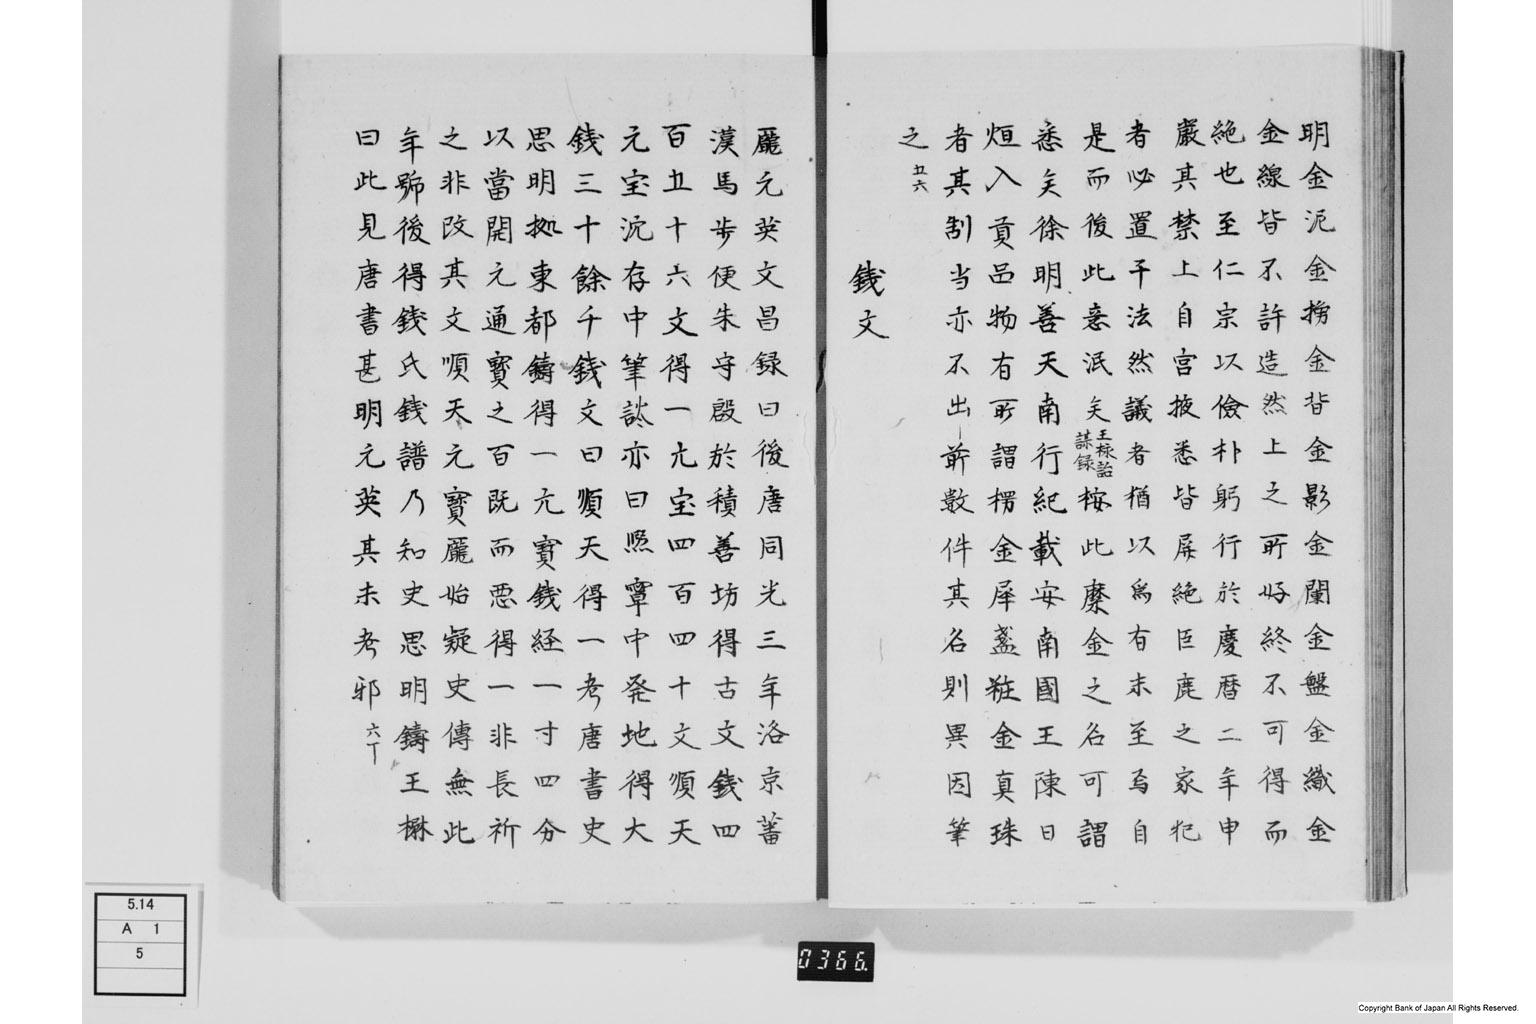 明金泥金搒金背金影金闌金盤金織金
金線皆不許造然上之所好終不可得而
絶也至仁宗以儉朴躬行於慶暦二年申
嚴其禁上自宮掖悉皆屏絶臣庶之家犯
者必置于法然議者猶以為有未至焉自
是而後此意泯矣王栐詒謀録桉此縻金之名可謂
悉矣徐明善天南行紀載安南國王陳日
烜入貢品物有所謂楞金犀盞粧金真珠
者其制当亦不出前数件其名則異因筆
之 五六
錢文
龎元英文昌録曰後唐同光三年洛京蕃
漢馬步使朱守殷於積善坊得古文錢四
百五十六文得一元宝四百四十文順天
元宝沉存中筆談亦曰熈寧中発地得大
錢三十餘千錢文曰順天得一考唐書史
思明拠東都鑄得一元寳錢経一寸四分
以當開元通寳之百既而悪得一非長祈
之非改其文順天元寳龎始疑史傳無此
年號後得錢氏錢譜乃知史思明鑄王楙
曰此見唐書甚明元英其未考邪 六丁
5.14
A 1
5
0366.
Copyright Bank of Japan All Rights Reserved.